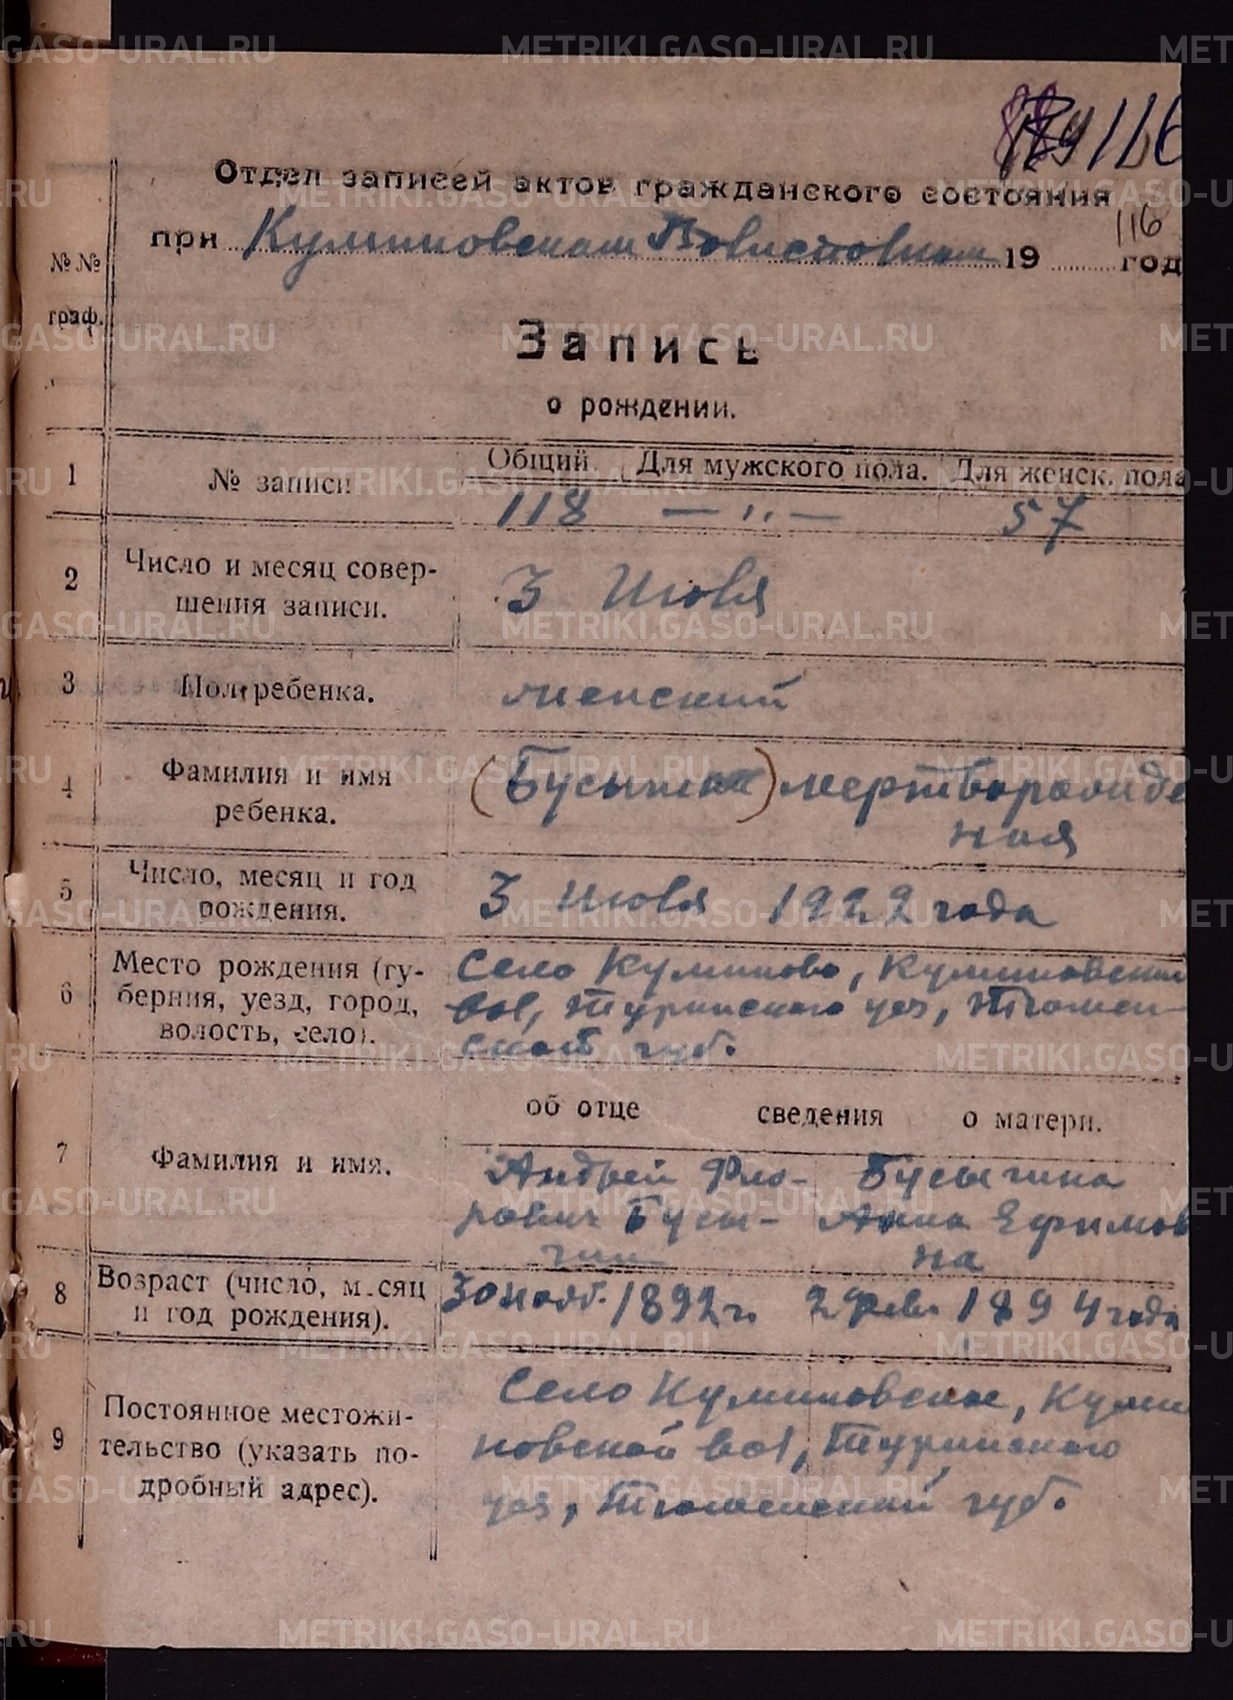 116
Отдел записей актов гражданского состояния
при Куминовском Волисполком 19 год
116
№№ граф.
Запись
о рождении.
1 № записи Общий. Для мужского пола. Для женск. пола
118 — ,, — 57
2 Число и месяц совер-
шения записи. 3 Июля
3 Пол ребенка. женский
4 Фамилия и имя
ребенка. (Бусыгина) мертворожде
ная
5 Число, месяц и год
рождения. 3 июля 1922 года
6 Место рождения (гу-
берния, уезд, город,
волость, село).
Село Куминово, Куминовской
вол, Туринского уез, Тюмен-
ской губ.
об отце сведения о матери.
7 Фамилия и имя.
Андрей Фло-
рович Бусы-
гин
Бусыгина
Анна Ефимов
на
8 Возраст (число, месяц
и год рождения). 30 нояб. 1892 г. 2 февр. 1894 года
9 Постоянное местожи-
тельство (указать по-
дробный адрес).
Село Куминовское, Куми
новской вол, Туринского
уез, Тюменской губ.
METRIKI.GASO-URAL.RU